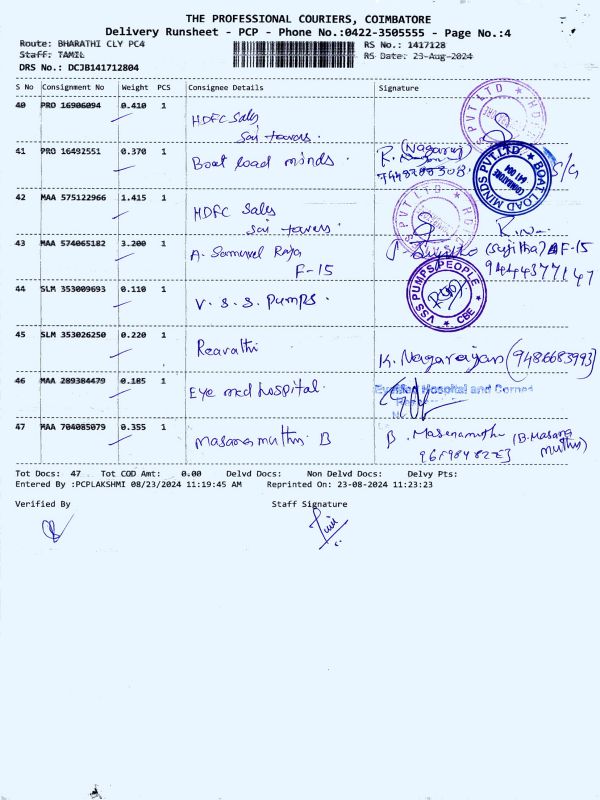 THE PROFESSIONAL COURIERS, COIMBATORE
Delivery Runsheet - PCP - Phone No.:0422-3505555 - Page No.:4
Route: BHARATHI CLY PC4 RS No.: 1417128
Staff: TAMIL RS Date: 23-Aug-2024
DRS No.: DCJB141712804
S No Consignment No Weight PCS Consignee Details Signature
40 PRO 16906094 0.410 1
HDFC Sales
Sai towers.
PVT LTD
41 PRO 16492551 0.370 1
Boat load minds. R. (Nagaraj)
BOAT LOAD MINDS PVT.LTD. COIMBATORE 641 004
42 MAA 575122966 1.415 1
HDFC Sales
Sai towers.
PVT LTD
43 MAA 574065182 3.200 1
A. Samuvel Raja (Sujitha) F-15
F-15 9444377147
44 SLM 353009693 0.110 1
V. S. S. Pumps.
VSS PUMPS PEOPLE CBE
45 SLM 353026250 0.220 1
Reavathi K. Nagarajan (9486683993)
46 MAA 289384479 0.185 1
Eye med hospital. Hospital and Cornea
47 MAA 704085079 0.355 1
masanamuthu B B. Masanamuthu (B.Masana
muthu)
Tot Docs: 47 Tot COD Amt: 0.00 Delvd Docs: Non Delvd Docs: Delvy Pts:
Entered By :PCPLAKSHMI 08/23/2024 11:19:45 AM Reprinted On: 23-08-2024 11:23:23
Verified By Staff Signature